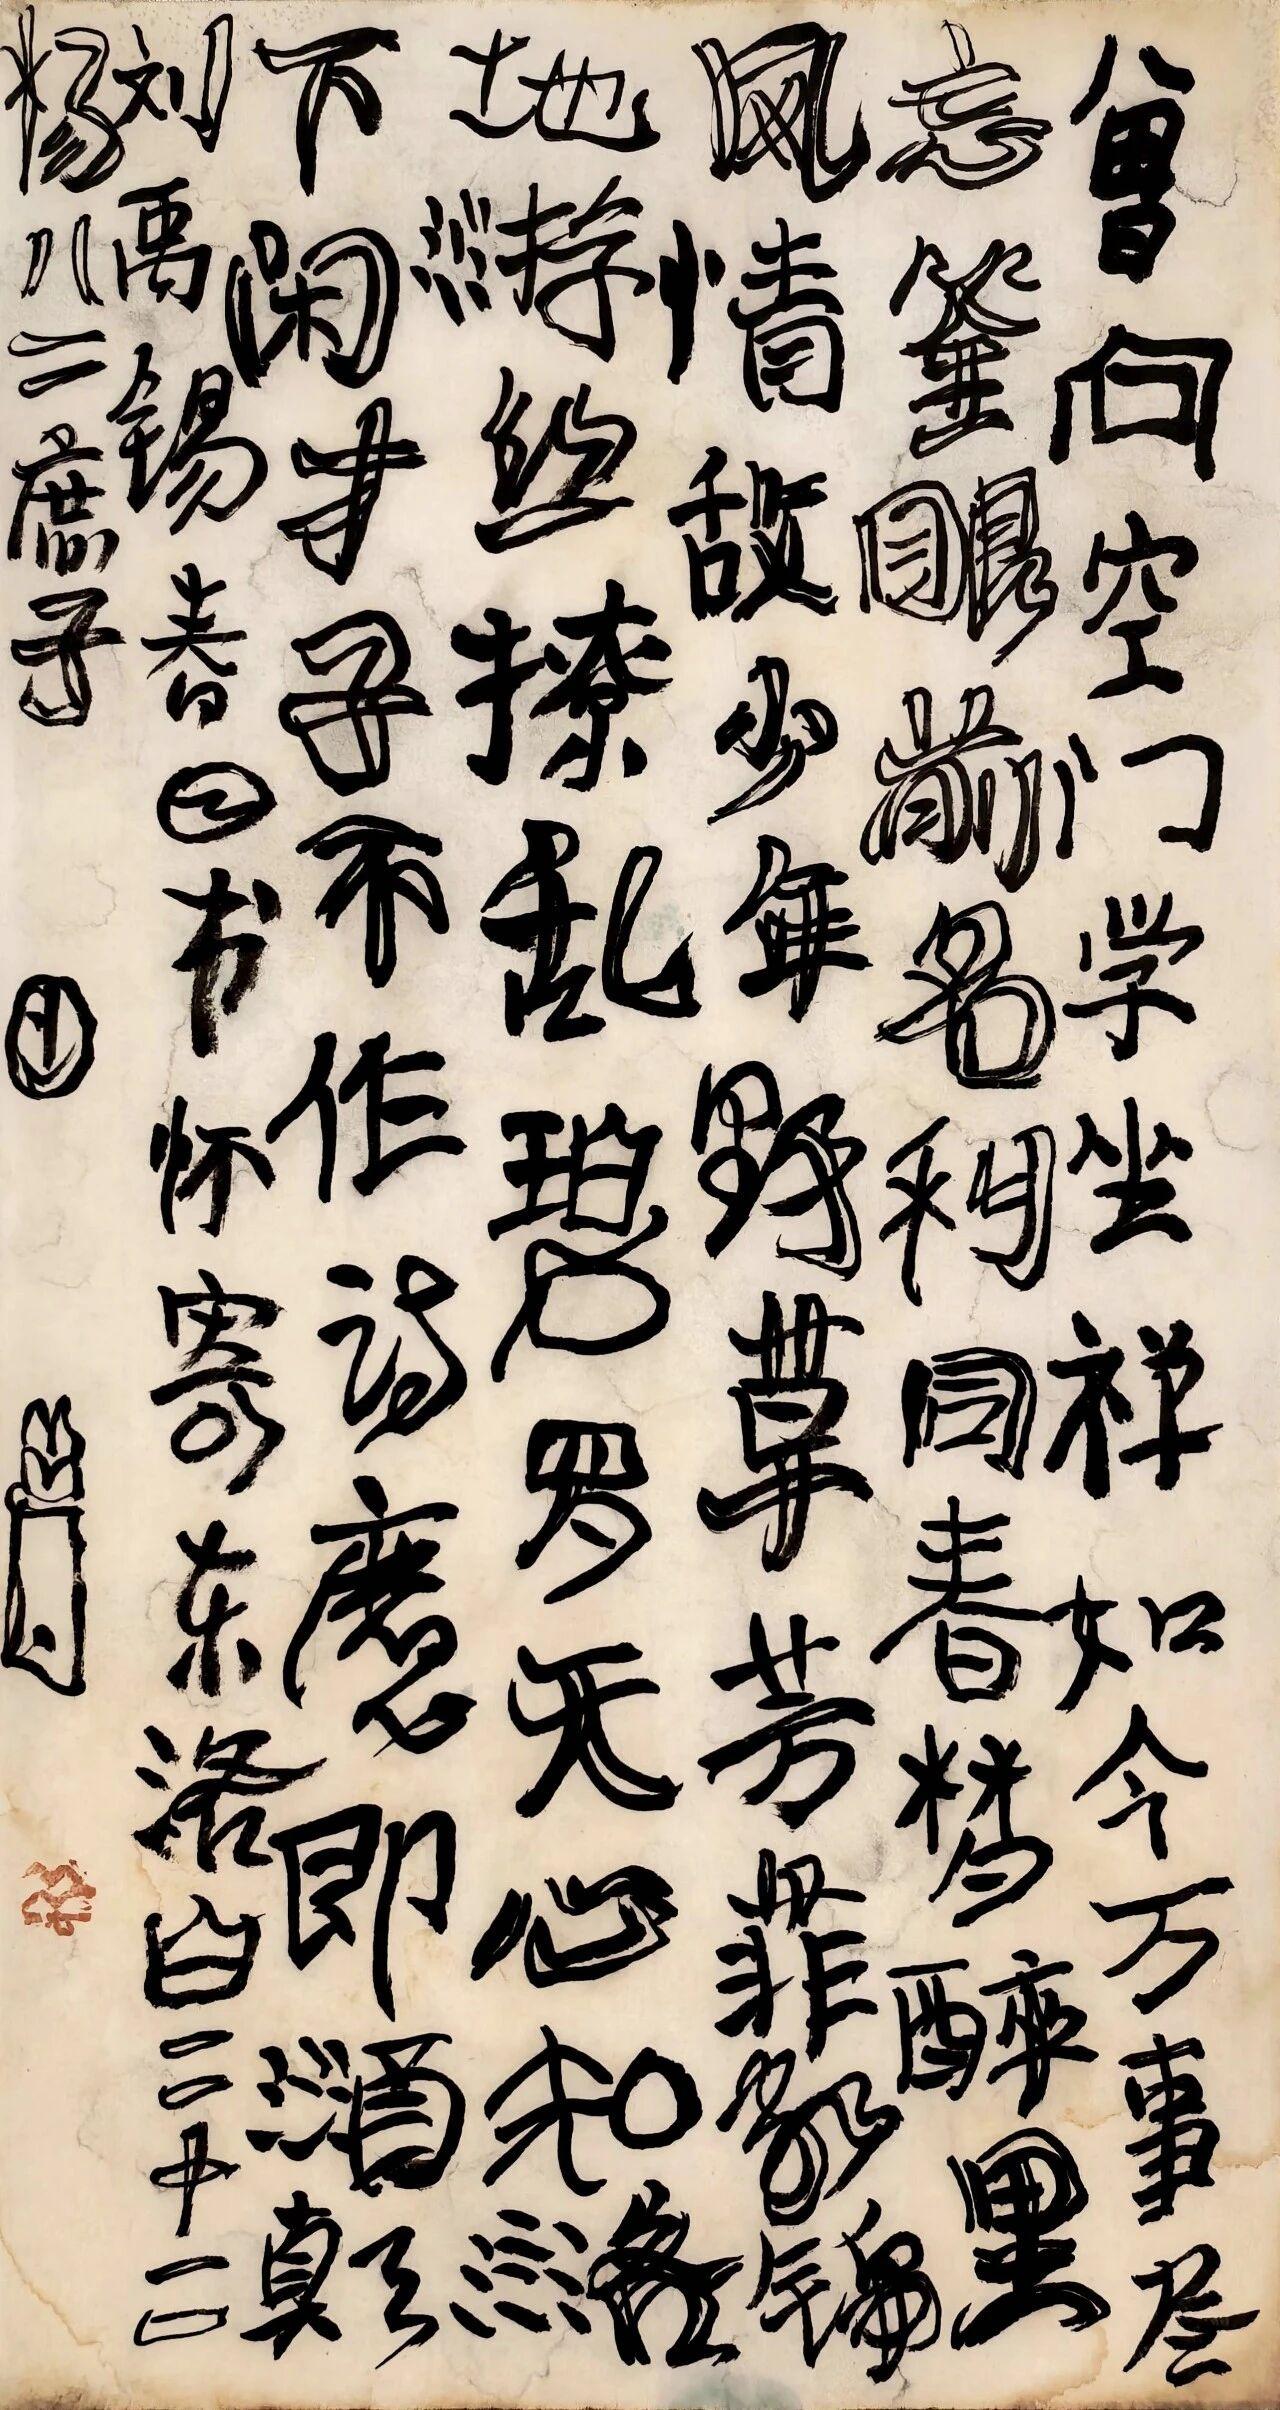 曾向空门学坐禅如今万事尽
忘筌眼前名利同春梦醉里
风情敌少年野草芳菲红锦
地游丝撩乱碧罗天心知洛
下闲才子不作诗魔即酒颠
刘禹锡春日书怀寄东洛白二十二
杨八二庶子